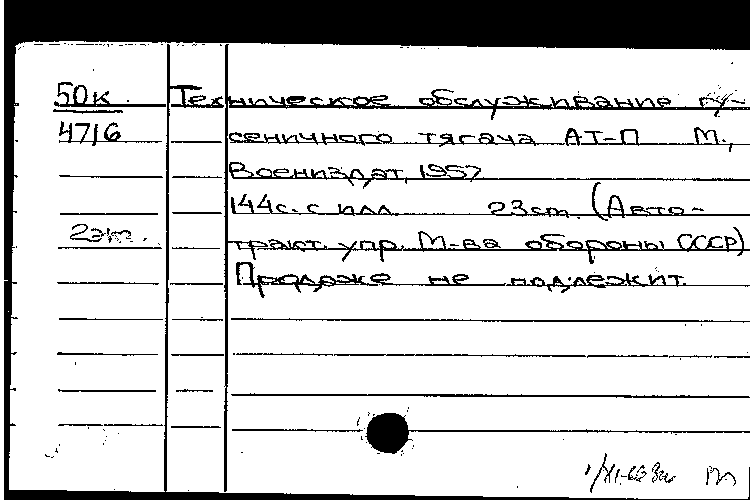 50к Техническое обслуживание гу-
4716 сеничного тягача АТ-П М.,
Воениздат, 1957
144с. с илл. 23см. (Авто-
2эк. тракт. упр. М-ва обороны СССР)
Продаже не подлежит.